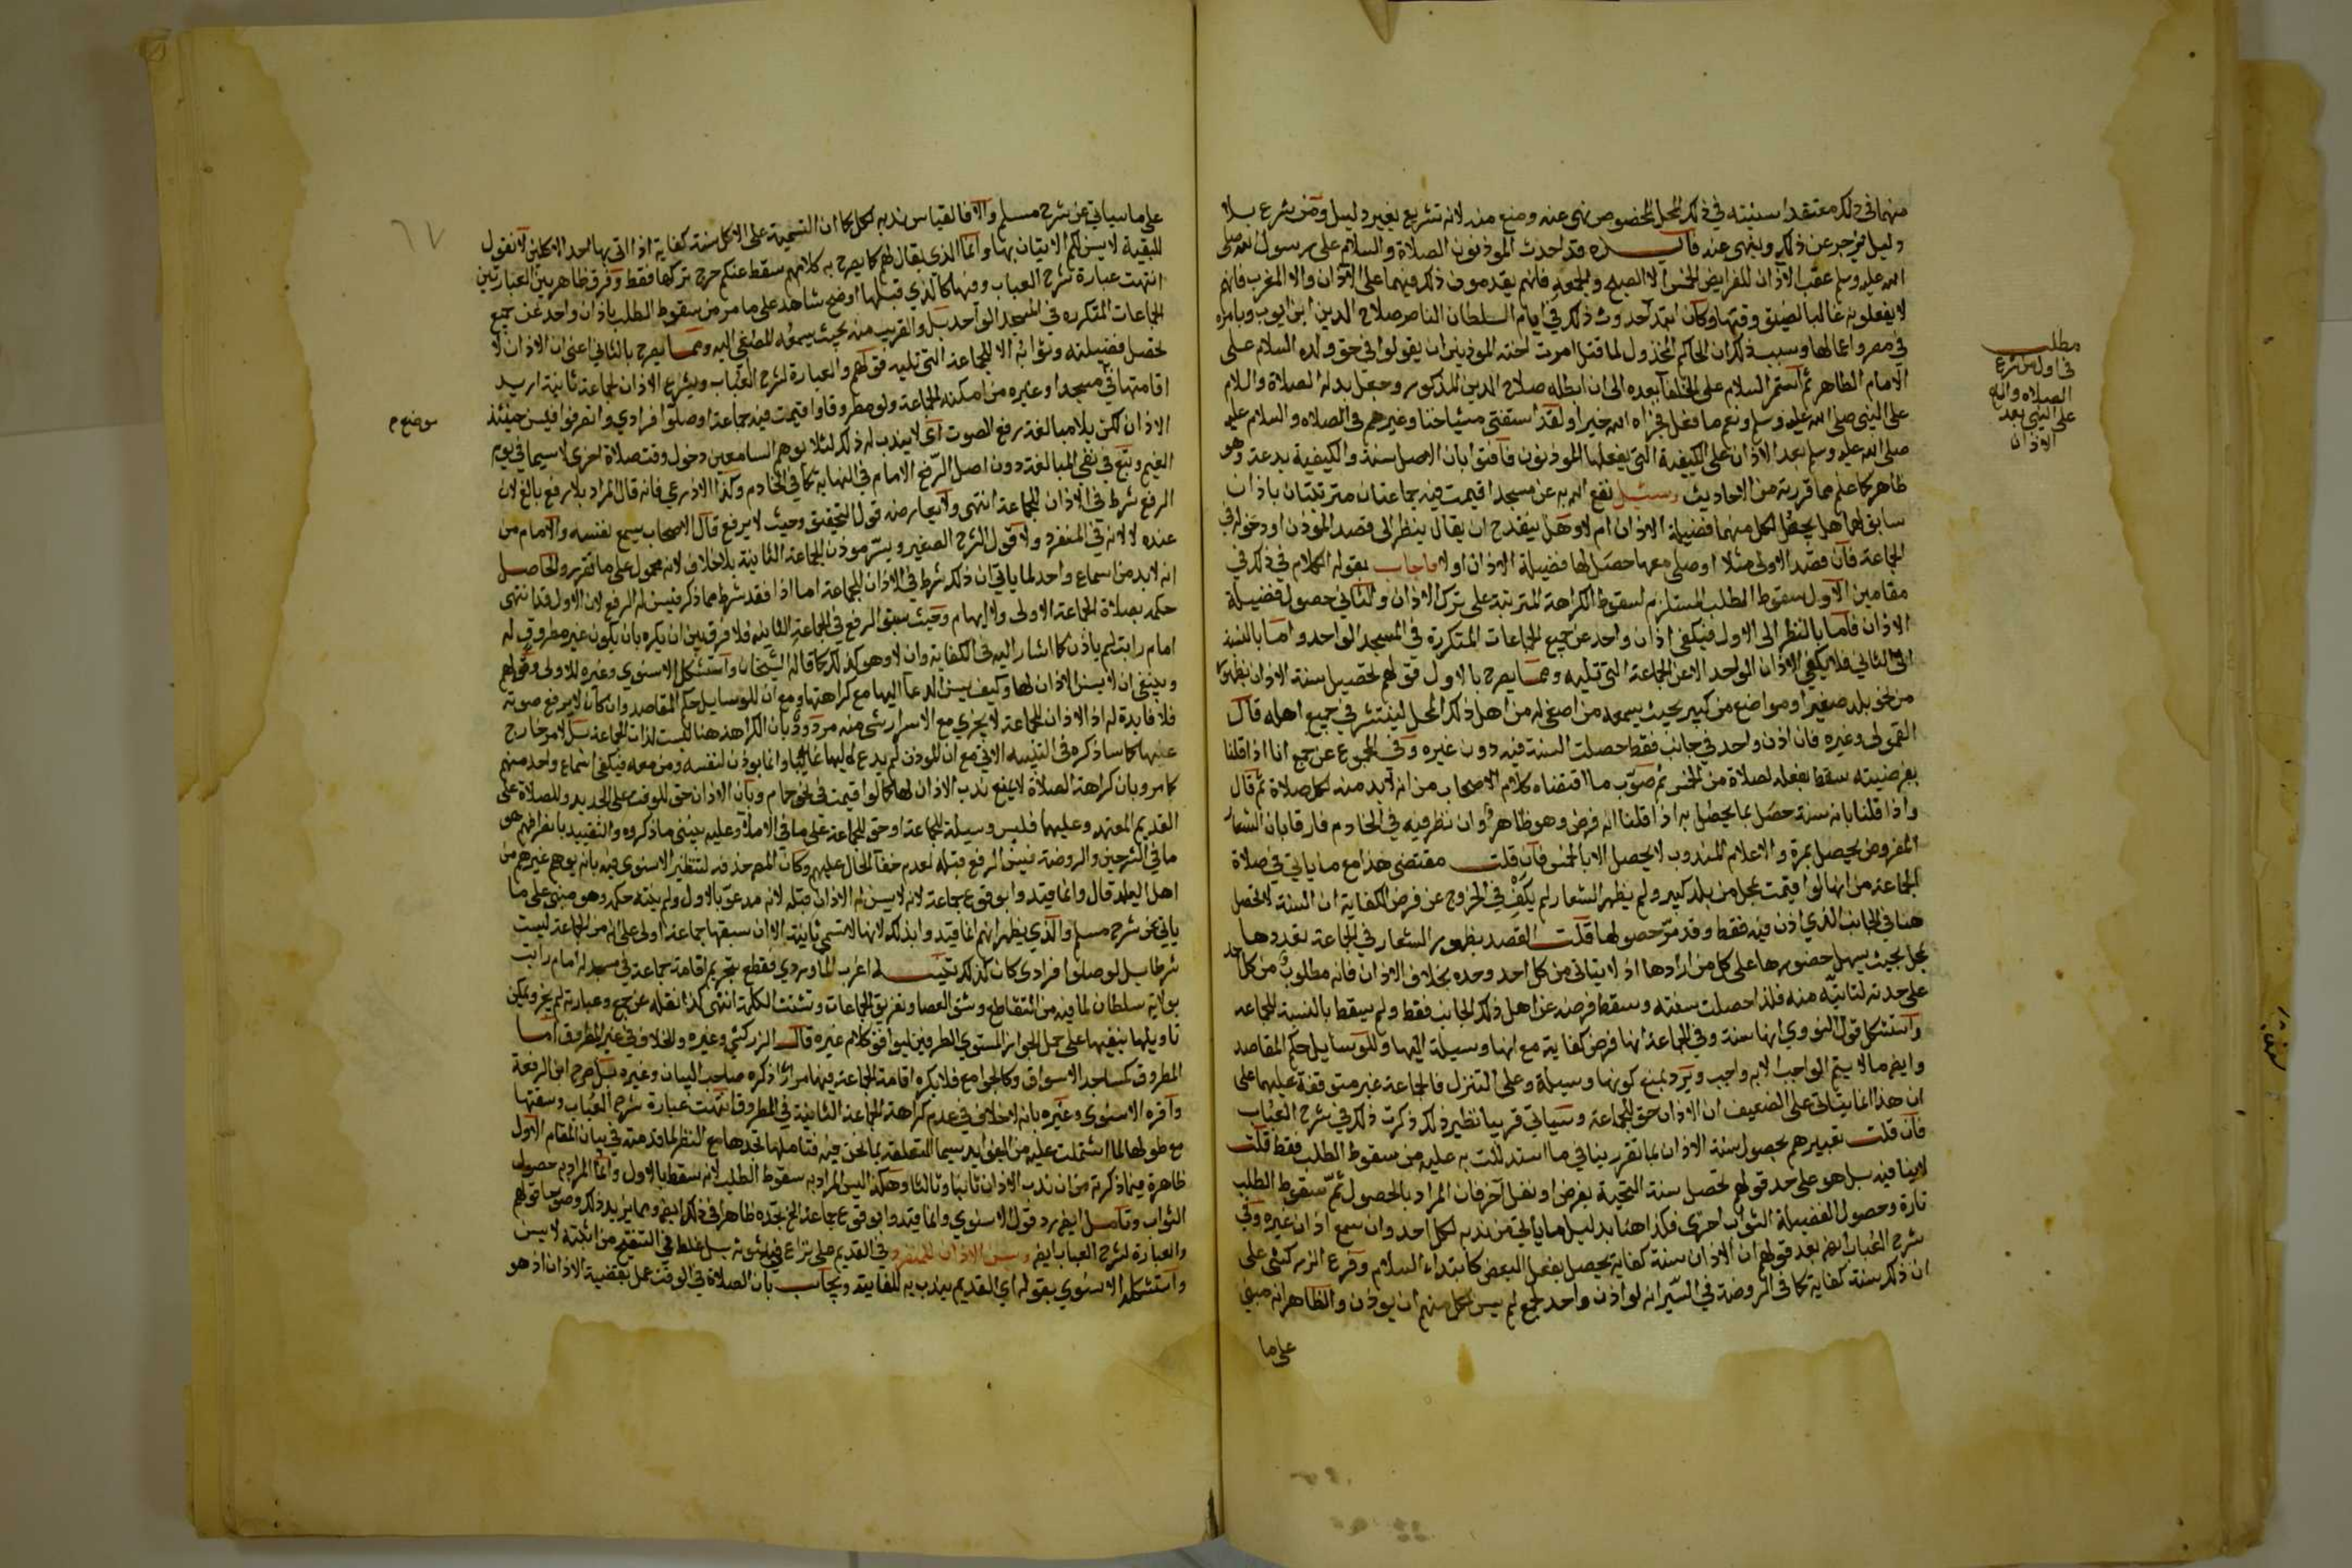 منهما في ذلك معتقدا سنيته في ذلك المحل المخصوص نهى عنه ومنع منه لانه تشريع بغير دليل ومن شرع بلا
دليل يزجر عن ذلك وينهى عنه فائدة قد احدث الموذنون الصلاة والسلام على رسول الله صلى
الله عليه وسلم عقب الاذان للفرايض الخمس الا الصبح والجمعة فانهم يقدمون ذلك فيهما على الاذان والا المغرب فانهم
لا يفعلونه غالبا لضيق وقتها وكان ابتداحدوث ذلك في ايام السلطان الناصر صلاح الدين ابن ايوب وبامره
في مصر واعمالها وسبب ذلك ان الحاكم المخذول لما قتل امرت اخته الموذنين ان يقولوا في حق ولده السلام على
الامام الطاهر ثم استمر السلام على الخلفا بعده الى ان ابطله صلاح الدين المذكور وجعل بدله الصلاة والسلام
على النبي صلى الله عليه وسلم ونعم ما فعل فجزاه الله خيرا ولقد استفتى مشياخنا وغيرهم في الصلاه والسلام عليه
صلى الله عليه وسلم بعد الاذان على الكيفية التي يفعلها الموذنون فافتوا بان الاصل سنة والكيفية بدعة وهو
ظاهر كما علم مما قررته من الاحاديث وسئل نفع الله به عن مسجد اقيمت فيه جماعتان مترتبتان باذان
سابق لهما هل يحصل لكل منهما فضيلة الاذان ام لا وهل ينقدح ان يقال ينظر الى قصد الموذن او دخوله في
الجماعة فان قصد الاولى مثلا او صلى معها حصل لها فضيلة الاذان او لا فاجاب بقوله الكلام في ذلك في
مقامين الاول سقوط الطلب المستلزم لسقوط الكراهة المترتبة على ترك الاذان والثاني حصول فضيلة
الاذان فاما بالنظر الى الاول فيكفي اذان واحد عن جميع الجماعات المتكررة في المسجد الواحد واما بالنسبة
الى الثاني فلا يكفي الاذان الواحد الا عن الجماعة التي تليه ومما يصرح بالاول قولهم تحصيل سنة الاذان بظهوره
من نحو بلد صغير او مواضع من كبير بحيث يسمعه من اصغى له من اهل ذلك المحل لينتشر في جميع اهله قال
القمولي وغيره فان اذن واحد في جانب فقط حصلت السنة فيه دون غيره وفي المجموع عن جمع انا اذا قلنا
بفرضيته سقط بفعله لصلاة من الخمس ثم صوب ما اقتضاه كلام الاصحاب من انه لا بد منه لكل صلاة ثم قال
واذا قلنا بانه سنة حصل بما يحصل به اذا قلنا انه فرض وهو ظاهر وان نظر فيه في الخادم فارقا بان الشعار
المفروض يحصل بمرة والاعلام المندوب لا يحصل الا بالخمس فان قلت مقتضى هذا مع ما ياتي في صلاة
الجماعة من انها لو اقيمت بمحل من بلد كبير ولم يظهر الشعار لم يكف في الخروج عن فرض الكفاية ان السنة لا تحصل
هنا في الجانب الذي اذن فيه فقط وقد مر حصولها قلت القصد بظهور الشعار في الجماعة تعددها
بمحل بحيث يسهل حضورها على كل من ارادها اذ لا يتاتى من كل احد وحده بخلاف الاذان فانه مطلوب من كل احد
على حدته لتاتيه منه فلذا حصلت سنته وسقط فرضه عن اهل ذلك الجانب فقط ولم يسقط بالنسبة للجماعة
واستشكل قول النووي انها سنة وفي الجماعة انها فرض كفاية مع انها وسيلة اليها وللوسايل حكم المقاصد
وايضا ما لا يتم الواجب الا به واجب ويرد بمنع كونها وسيلة وعلى التنزل فالجماعة غير متوقفة عليهما على
ان هذا انما يتاتى على الضعيف ان الاذان حق للجماعة وسياتي قريبا نظير ذلك ذكرت ذلك في شرح العباب
فان قلت تعبيرهم بحصول سنة الاذان بما تقرر ينافي ما استدللت به عليه من سقوط الطلب فقط قلت
لا ينافيه بل هو على حد قولهم تحصل سنة التحية بفرض او نفل آخر فان المراد بالحصول ثم سقوط الطلب
تارة وحصول الفضيلة الثواب اخرى فكذا هنا بدليل ما ياتي من ندبه لكل احد وان سمع اذان غيره وفي
شرح العباب ايضا بعد قولهم ان الاذان سنة كفاية يحصل بفعل البعض كابتداء السلام وفرع الزركشي على
ان ذلك سنة كفاية كما في الروضة في السير انه لو اذن واحد لجمع لم يسن لكل منهم ان يوذن والظاهر انه مبني
على ما
مطلب
في اول من شرع
الصلاه والسلام
على النبي بعد
الاذان
على ما سياتي عن شرح مسلم والا فالقياس ندبه لكل كما ان التسمية على الاكل سنة كفاية اذا اتى بها احد الاكلين لا نقول
للبقية لا يسن لكم الاتيان بها وانما الذي يقال لهم كما يصرح به كلامهم سقط عنكم حرج تركها فقط وفرق ظاهر بين العبارتين
انتهت عبارة شرح العباب وفيها كالذي قبلها اوضح شاهد على ما مر من سقوط الطلب باذان واحد عن جميع
الجماعات المتكرره في المسجد الواحد بل والقريب منه بحيث يسمعه المصغي اليه ومما يصرح بالثاني اعني ان الاذان لا
تحصل فضيلته وثوابه الا للجماعة التي تليه قولهم والعبارة لشرح العباب ويشرع الاذان لجماعة ثانية اريد
اقامتها في مسجد او غيره من امكنة الجماعة ولو مطروقا واقيمت فيه جماعة او صلوا فرادي وانصرفوا فيسن حينئذ
الاذان لكن بلا مبالغة برفع الصوت اي لا يندب له ذلك لئلا يوهم السامعين دخول وقت صلاة اخرى لا سيما في يوم
الغيم وتبع في نفي المبالغة دون اصل الرفع الامام في النهاية كما في الخادم وكذا الاذرعي فانه قال المراد بلا رفع بالغ لان
الرفع شرط في الاذان للجماعة انتهى ولا يعارضه قول التحقيق وحيث لا يرفع قال الاصحاب يسمع نفسه والامام من
عنده لا لانه في المنفرد ولا قول الشرح الصغير ويسر موذن الجماعة الثانية بلا خلاف لانه محمول على ما تقرر والحاصل
انه لا بد من اسماع واحد لما ياتي ان ذلك شرط في الاذان للجماعة اما اذا فقد شرط مما ذكر فيسن له الرفع لان الاول قد انتهى
حكمه بصلاة الجماعة الاولى ولا ايهام وحيث سبق الرفع في الجماعة الثانية فلا فرق بين ان يكره بان يكون غير مطروق له
امام راتب لم ياذن كما اشار اليه في الكفاية وان لا وهو كذلك كما قاله الشيخان واستشكل الاسنوي وغيره للاولى وقولهم
وينبغي ان لا يسن الاذان لها وكيف يسن الدعا اليها مع كراهتها ومع ان للوسايل حكم المقاصد وان كان لا يرفع صوته
فلا فايدة له اذ الاذان للجماعة لا يجزي مع الاسرار بشي منه مردود بان الكراهة هنا ليست لذات الجماعة بل لامر خارج
عنها كما ساذكره في التنبيه الاتي مع ان الموذن لم يدع اليها غايبا وانما يوذن لنفسه ومن معه فيكفي اسماع واحد منهم
كما مر وبان كراهة الصلاة لا يمنع ندب الاذان لها كما لو اقيمت في نحو حمام وبان الاذان حق للوقت على الجديد وللصلاة على
القديم المعتمد وعليهما فليس وسيلة للجماعة او حق للجماعة على ما في الاملاء وعليه يبنى ما ذكروه والتقييد بانصرافهم هو
ما في الشرحين والروضة فيسن الرفع قبله لعدم خفا الحال عليهم وكان المصنف حذفه لتنظير الاسنوي فيه بانه يوهم غيرهم من
اهل البلد قال وانما قيدوا بوقوع جماعة لانه لا يسن له الاذان قبله لانه مدعو بالاول ولم ينته حكمه وهو مبني على ما
ياتي عن شرح مسلم والذي يظهر انهم انما قيدوا بذلك لانها لا تسمى ثانية الا ان سبقها جماعة اولى على انه من الجماعة ليست
شرطا بل لو صلوا فرادى كان كذلك تنبيه اغرب الماوردي فقطع بتحريم اقامة جماعة في مسجد له امام راتب
بولاية سلطان لما فيه من التقاطع وشق العصا وتفريق الجماعات وتشتت الكلمة انتهى كذا نقله عن جمع وعبارته لم يجز ويمكن
تاويلها بنفيها على حمل الجواز المستوي الطرفين ليوافق كلام غيره قال الزركشي وغيره والخلاف في غير المطروق اما
المطروق كمساجد الاسواق وكالجوامع فلا يكره اقامة الجماعة فيها مرارا ذكره صاحب البيان وغيره بل صرح ابن الرفعة
واقره الاسنوي وغيره بانه لا خلاف في عدم كراهة الجماعة الثانية في المطروق انتهت عبارة شرح العباب وسقتها
مع طولها لما اشتملت عليه من الفوايد سيما المتعلقة بما نحن فيه فتاملها تجدها مع النظر لما قدمته في بيان المقام الاول
ظاهرة فيما ذكرته من ان ندب الاذان ثانيا وثالثا وهكذا ليس المراد به سقوط الطلب لانه سقط بالاول وانما المراد به حصول
الثواب وتامل ايضا رد قول الاسنوي وانما قيدوا بوقوع جماعة الخ تجده ظاهرا في ذلك ايضا ومما يزيد ذلك وضوحا قولهم
والعبارة لشرح العباب ايضا ويسن الاذان للمنفرد في القديم على نزاع في ثبوته بل غلط في التنقيح من اثبته لا يسن
واستشكله الاسنوي بقوله اي القديم يندب به للفايتة ويجاب بان الصلاة في الوقت عمل بقضية الاذان اذ هو
موضع م
٦٧